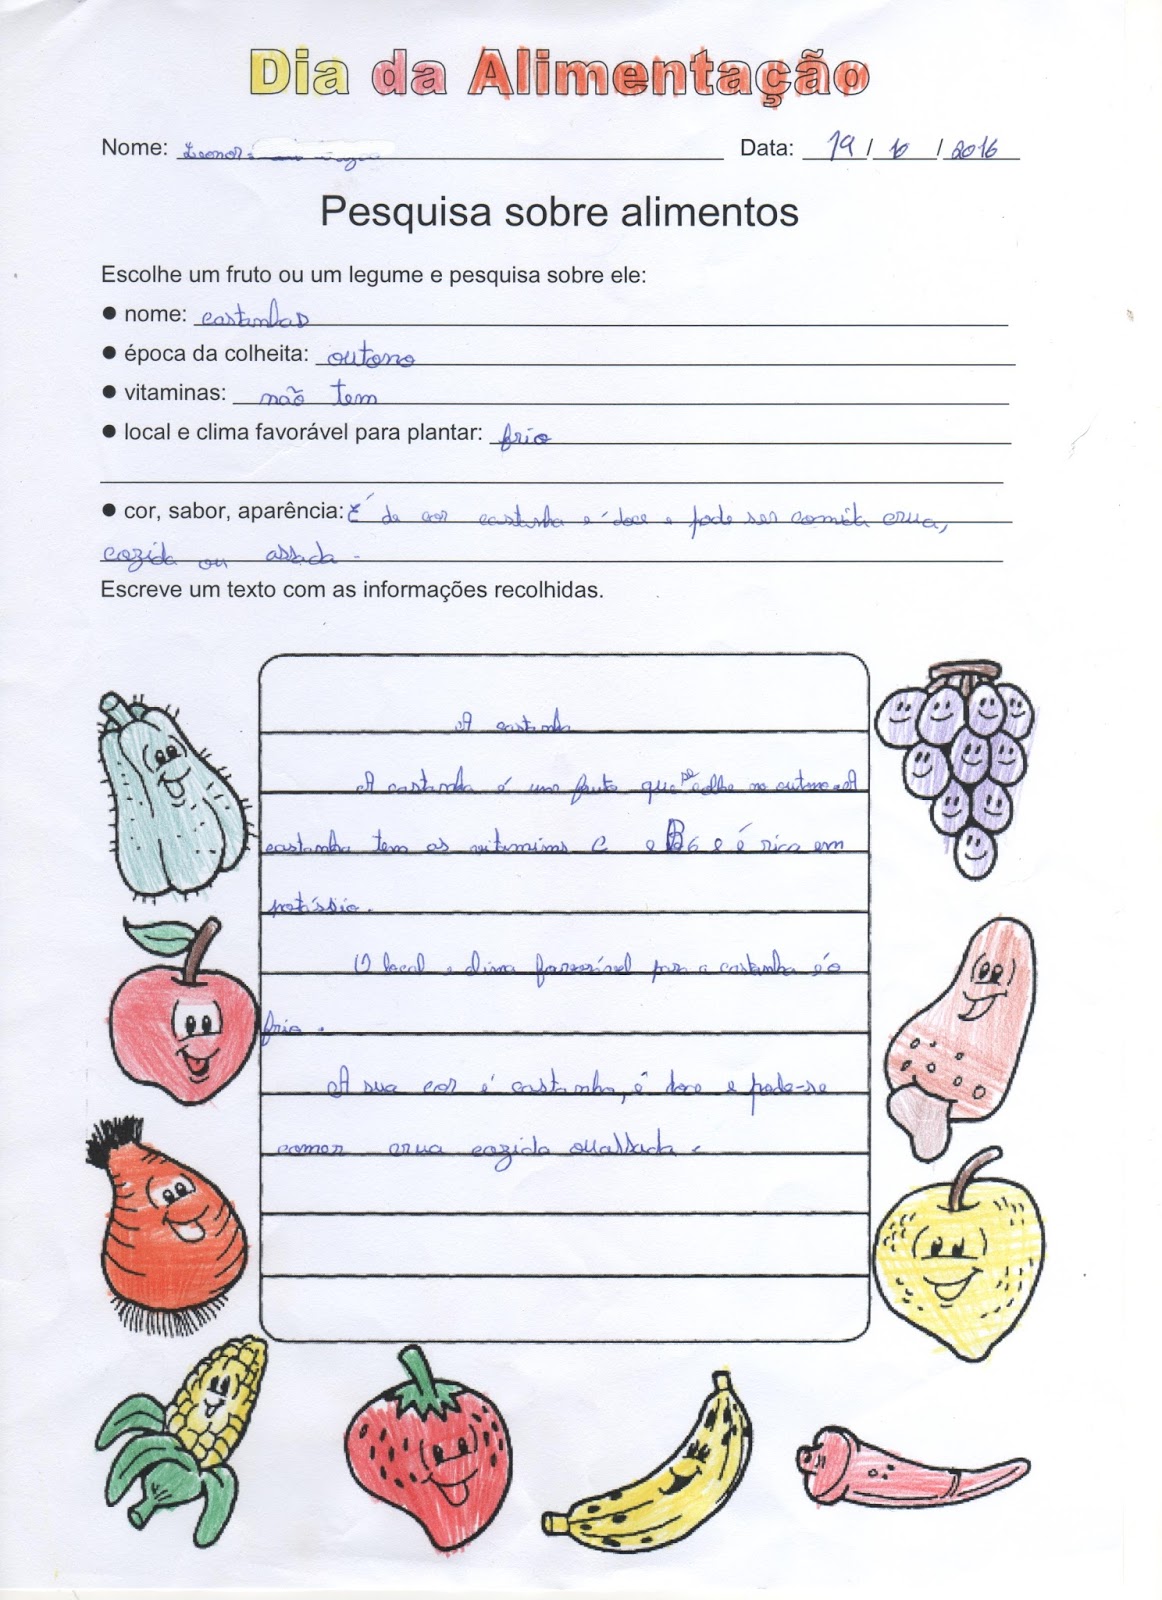 Dia da Alimentação
Nome: Leonor Data: 19/10/2016
Pesquisa sobre alimentos
Escolhe um fruto ou um legume e pesquisa sobre ele:
● nome: castanhas
● época da colheita: outono
● vitaminas: não tem
● local e clima favorável para plantar: frio
● cor, sabor, aparência: É de cor castanha e doce e pode ser comida crua,
cozida ou assada.
Escreve um texto com as informações recolhidas.
A castanha
A castanha é um fruto que se colhe no outono. A
castanha tem as vitamims C e B6 e é rica em
potássio.
O local e clima favorável para a castanha é o
frio.
A sua cor é castanha, é doce e pode-se
comer crua cozida ou assada.